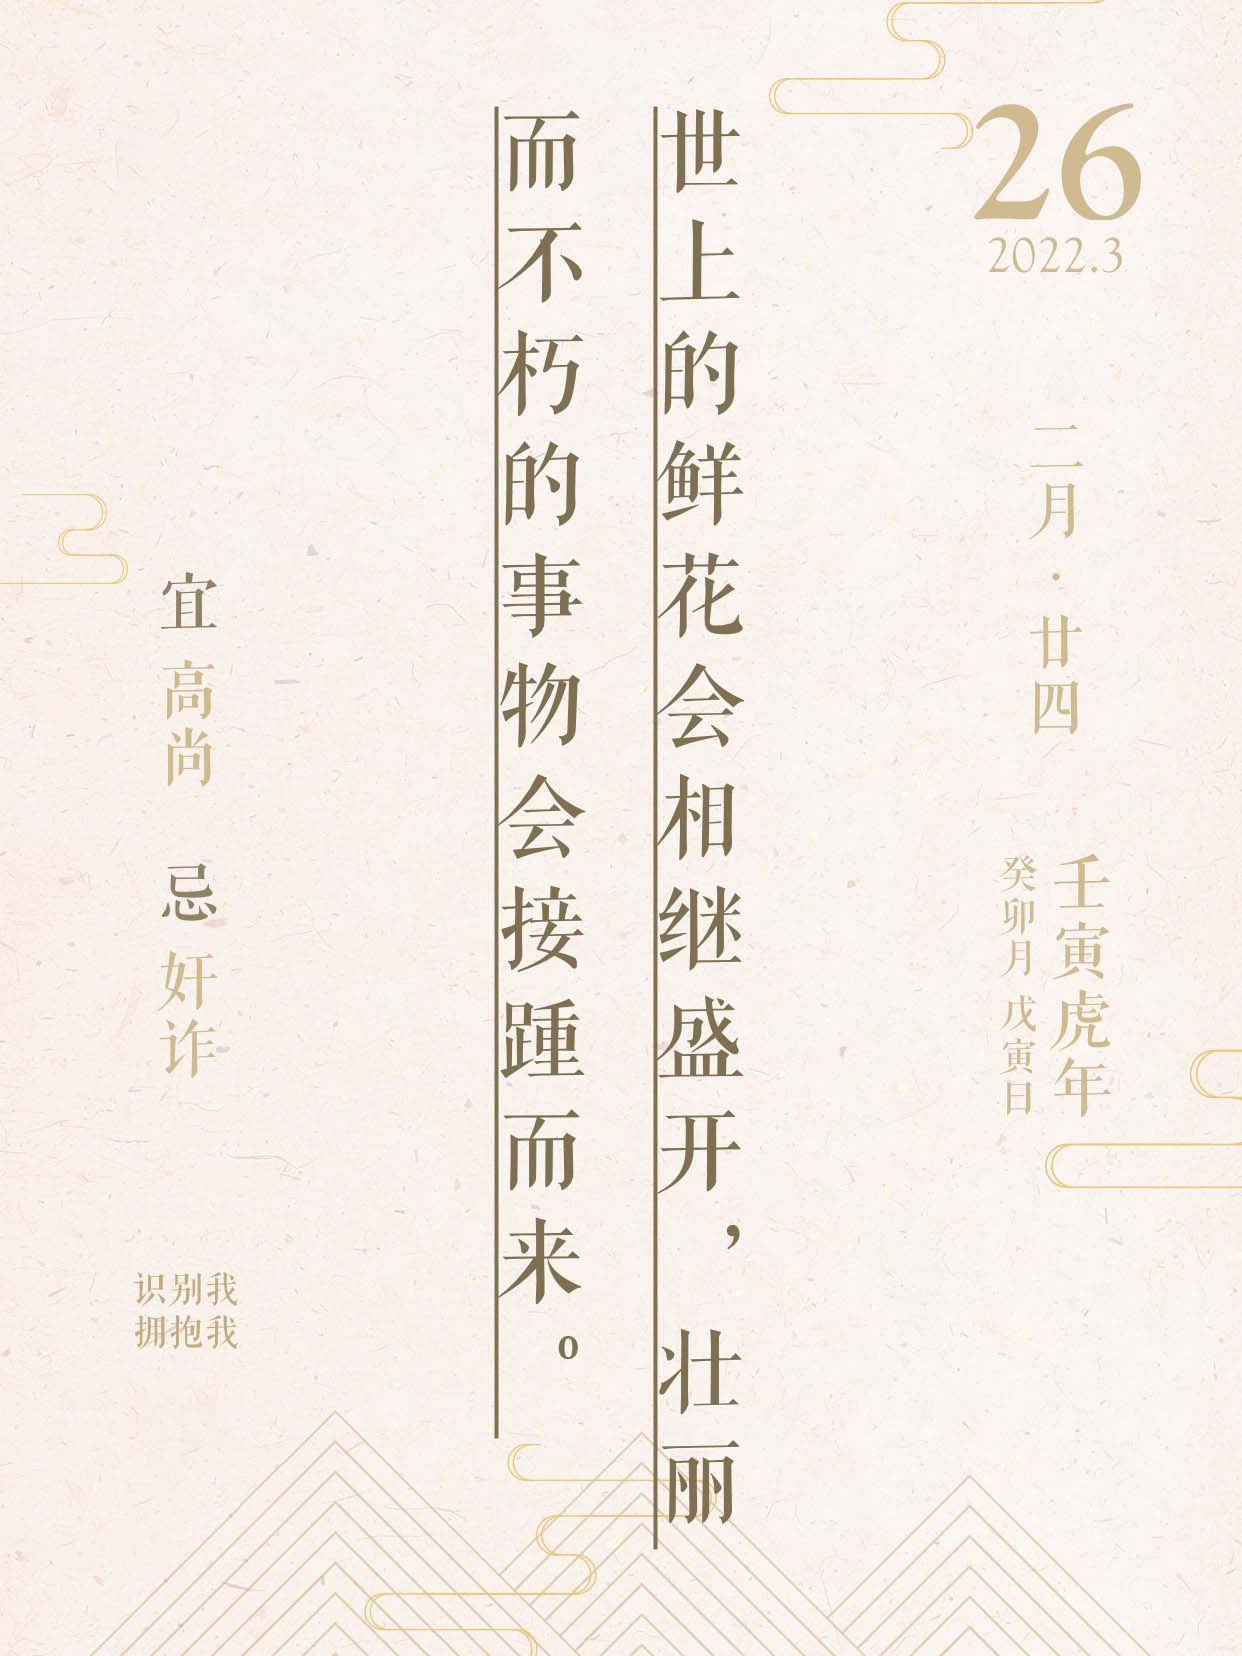 26
2022.3
二月·廿四
壬寅虎年
癸卯月 戊寅日
世上的鲜花会相继盛开，壮丽
而不朽的事物会接踵而来。
宜 高尚 忌 奸诈
识别我
拥抱我